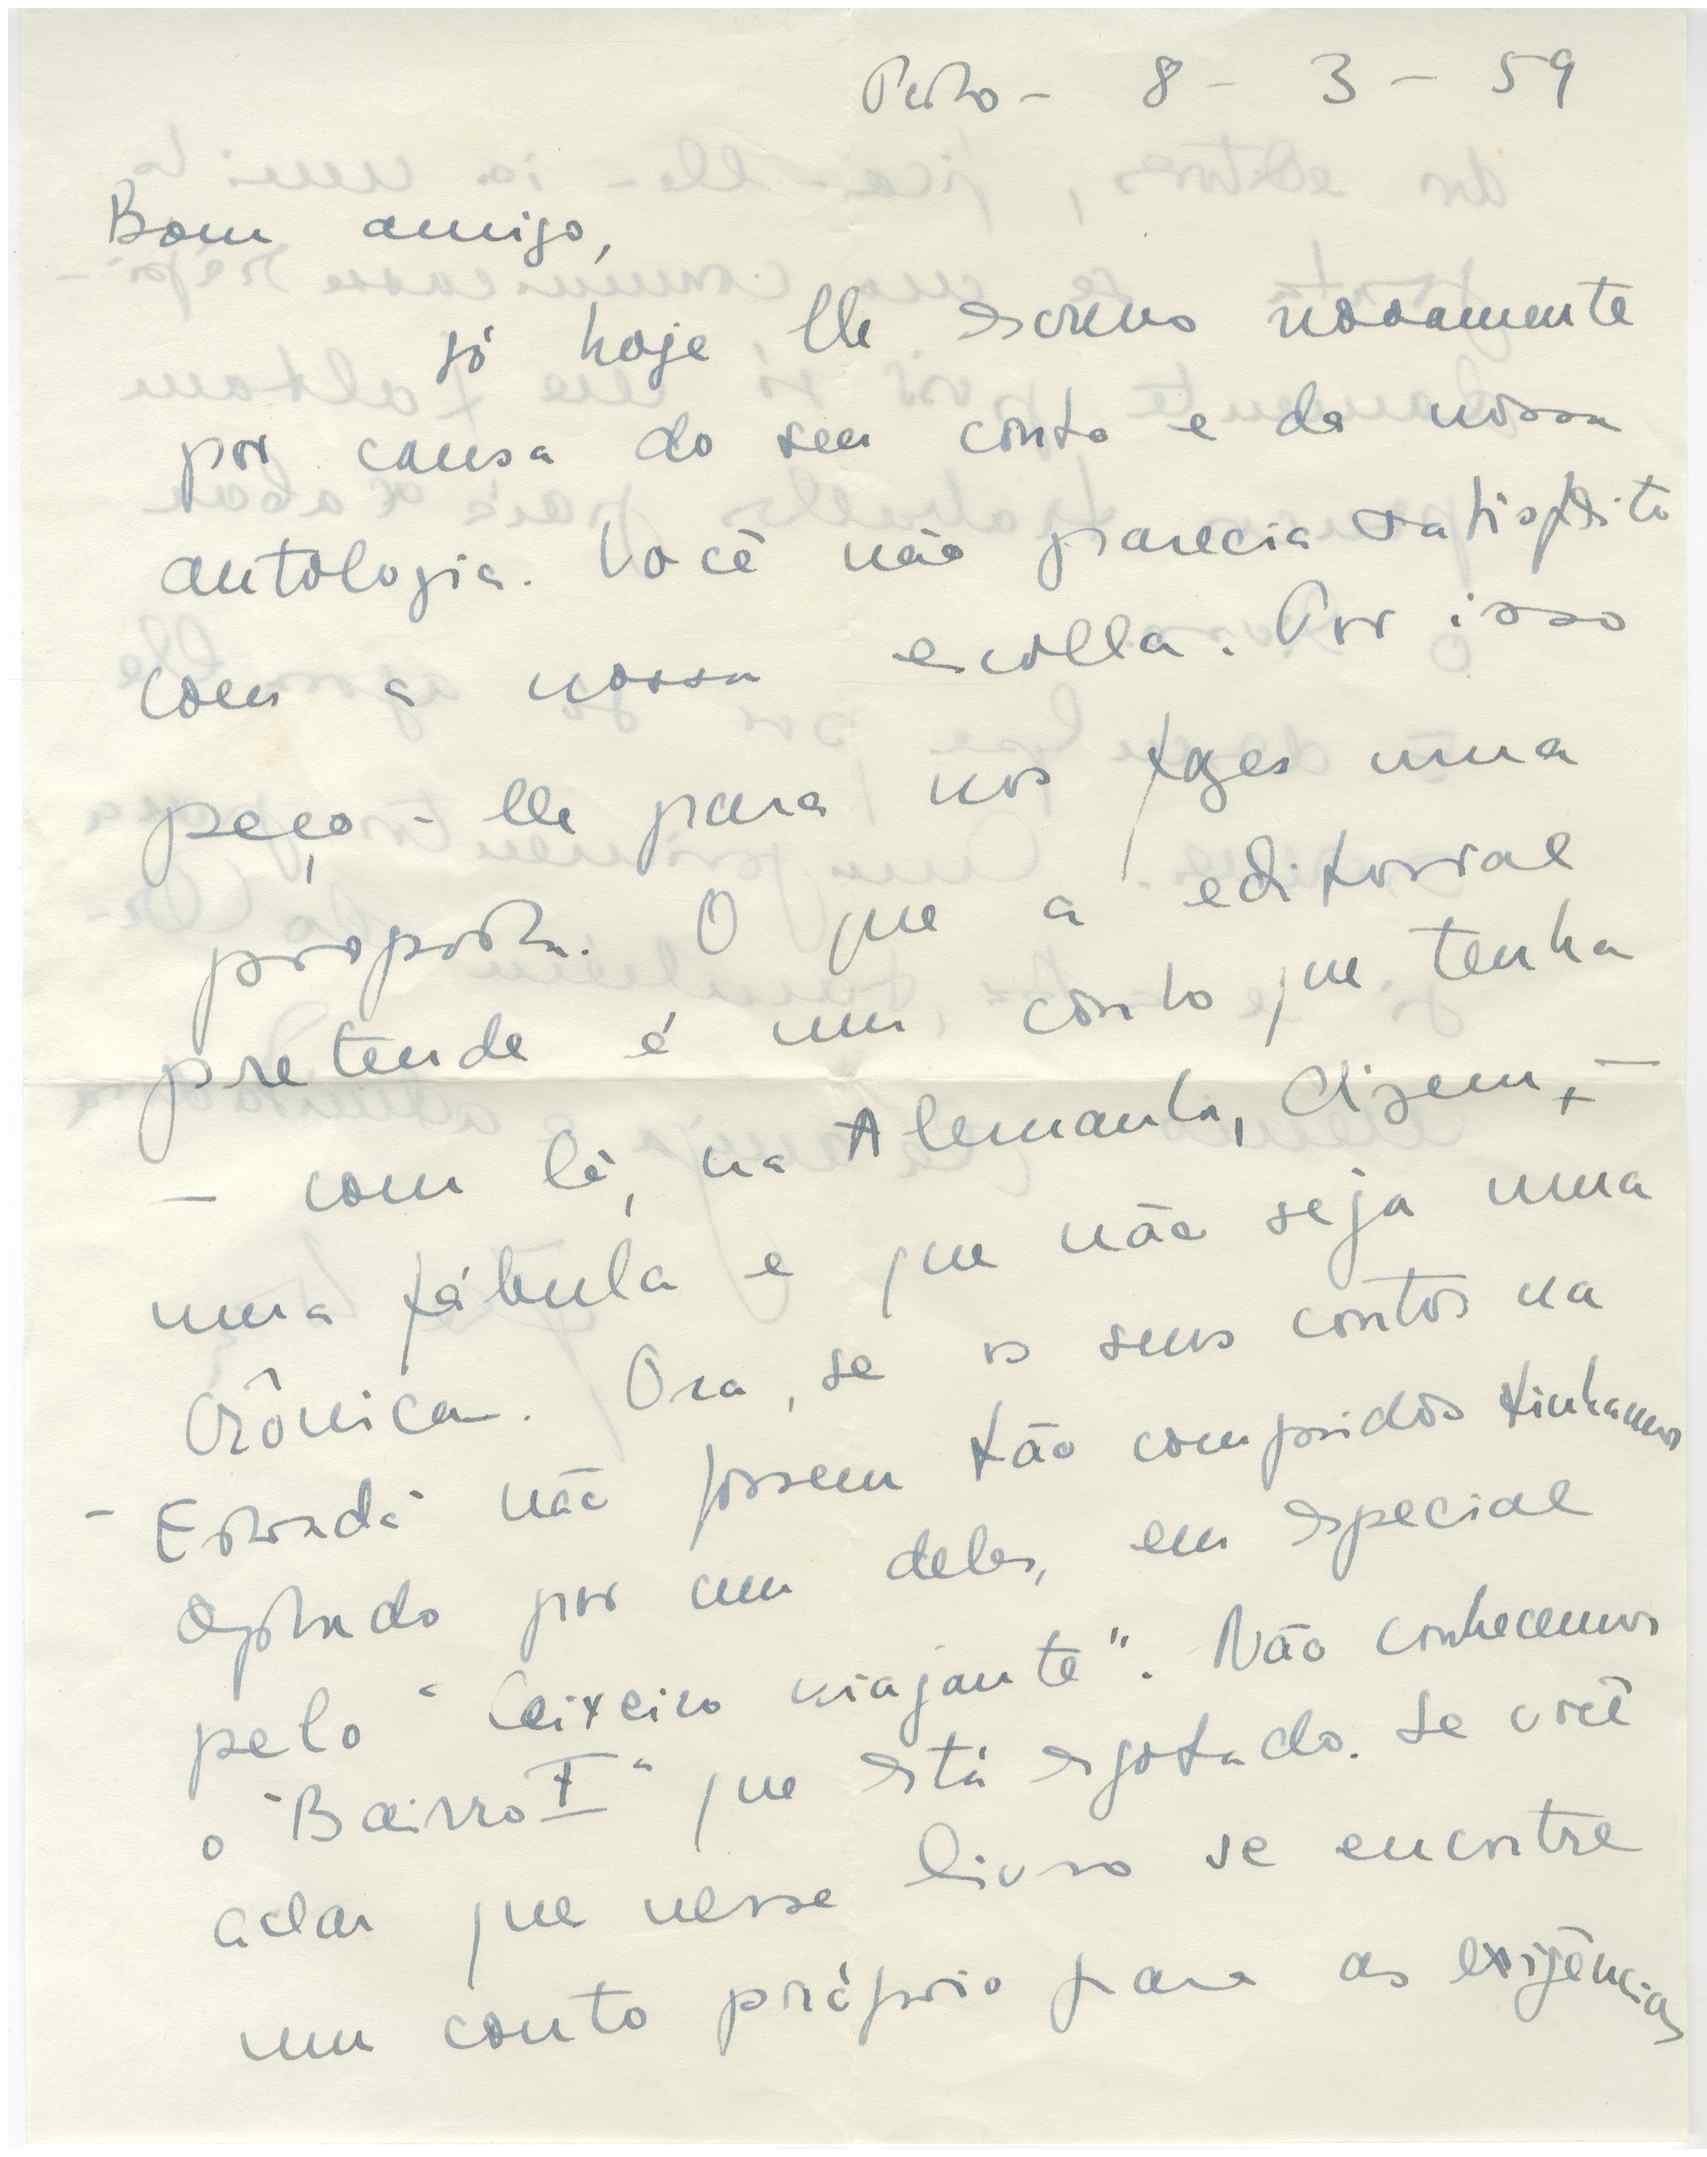 Porto - 8 - 3 - 59
Bom amigo,
só hoje lhe escrevo novamente
por causa do seu conto e da nossa
antologia. Você não parecia satisfeito
com a nossa escolha. Por isso
peço-lhe para nos fazer uma
proposta. O que a editorial
pretende é um conto que tenha
- como lá, na Alemanha, dizem, -
uma fábula e que não seja uma
crónica. Ora, se os seus contos na
"Estrada" não fossem tão compridos tínhamos
optado por um deles, em especial
pelo "Caixeiro viajante". Não conhecemos
o "Bairro I" que está esgotado. Se você
achar que nesse livro se encontre
um conto próprio para as exigências